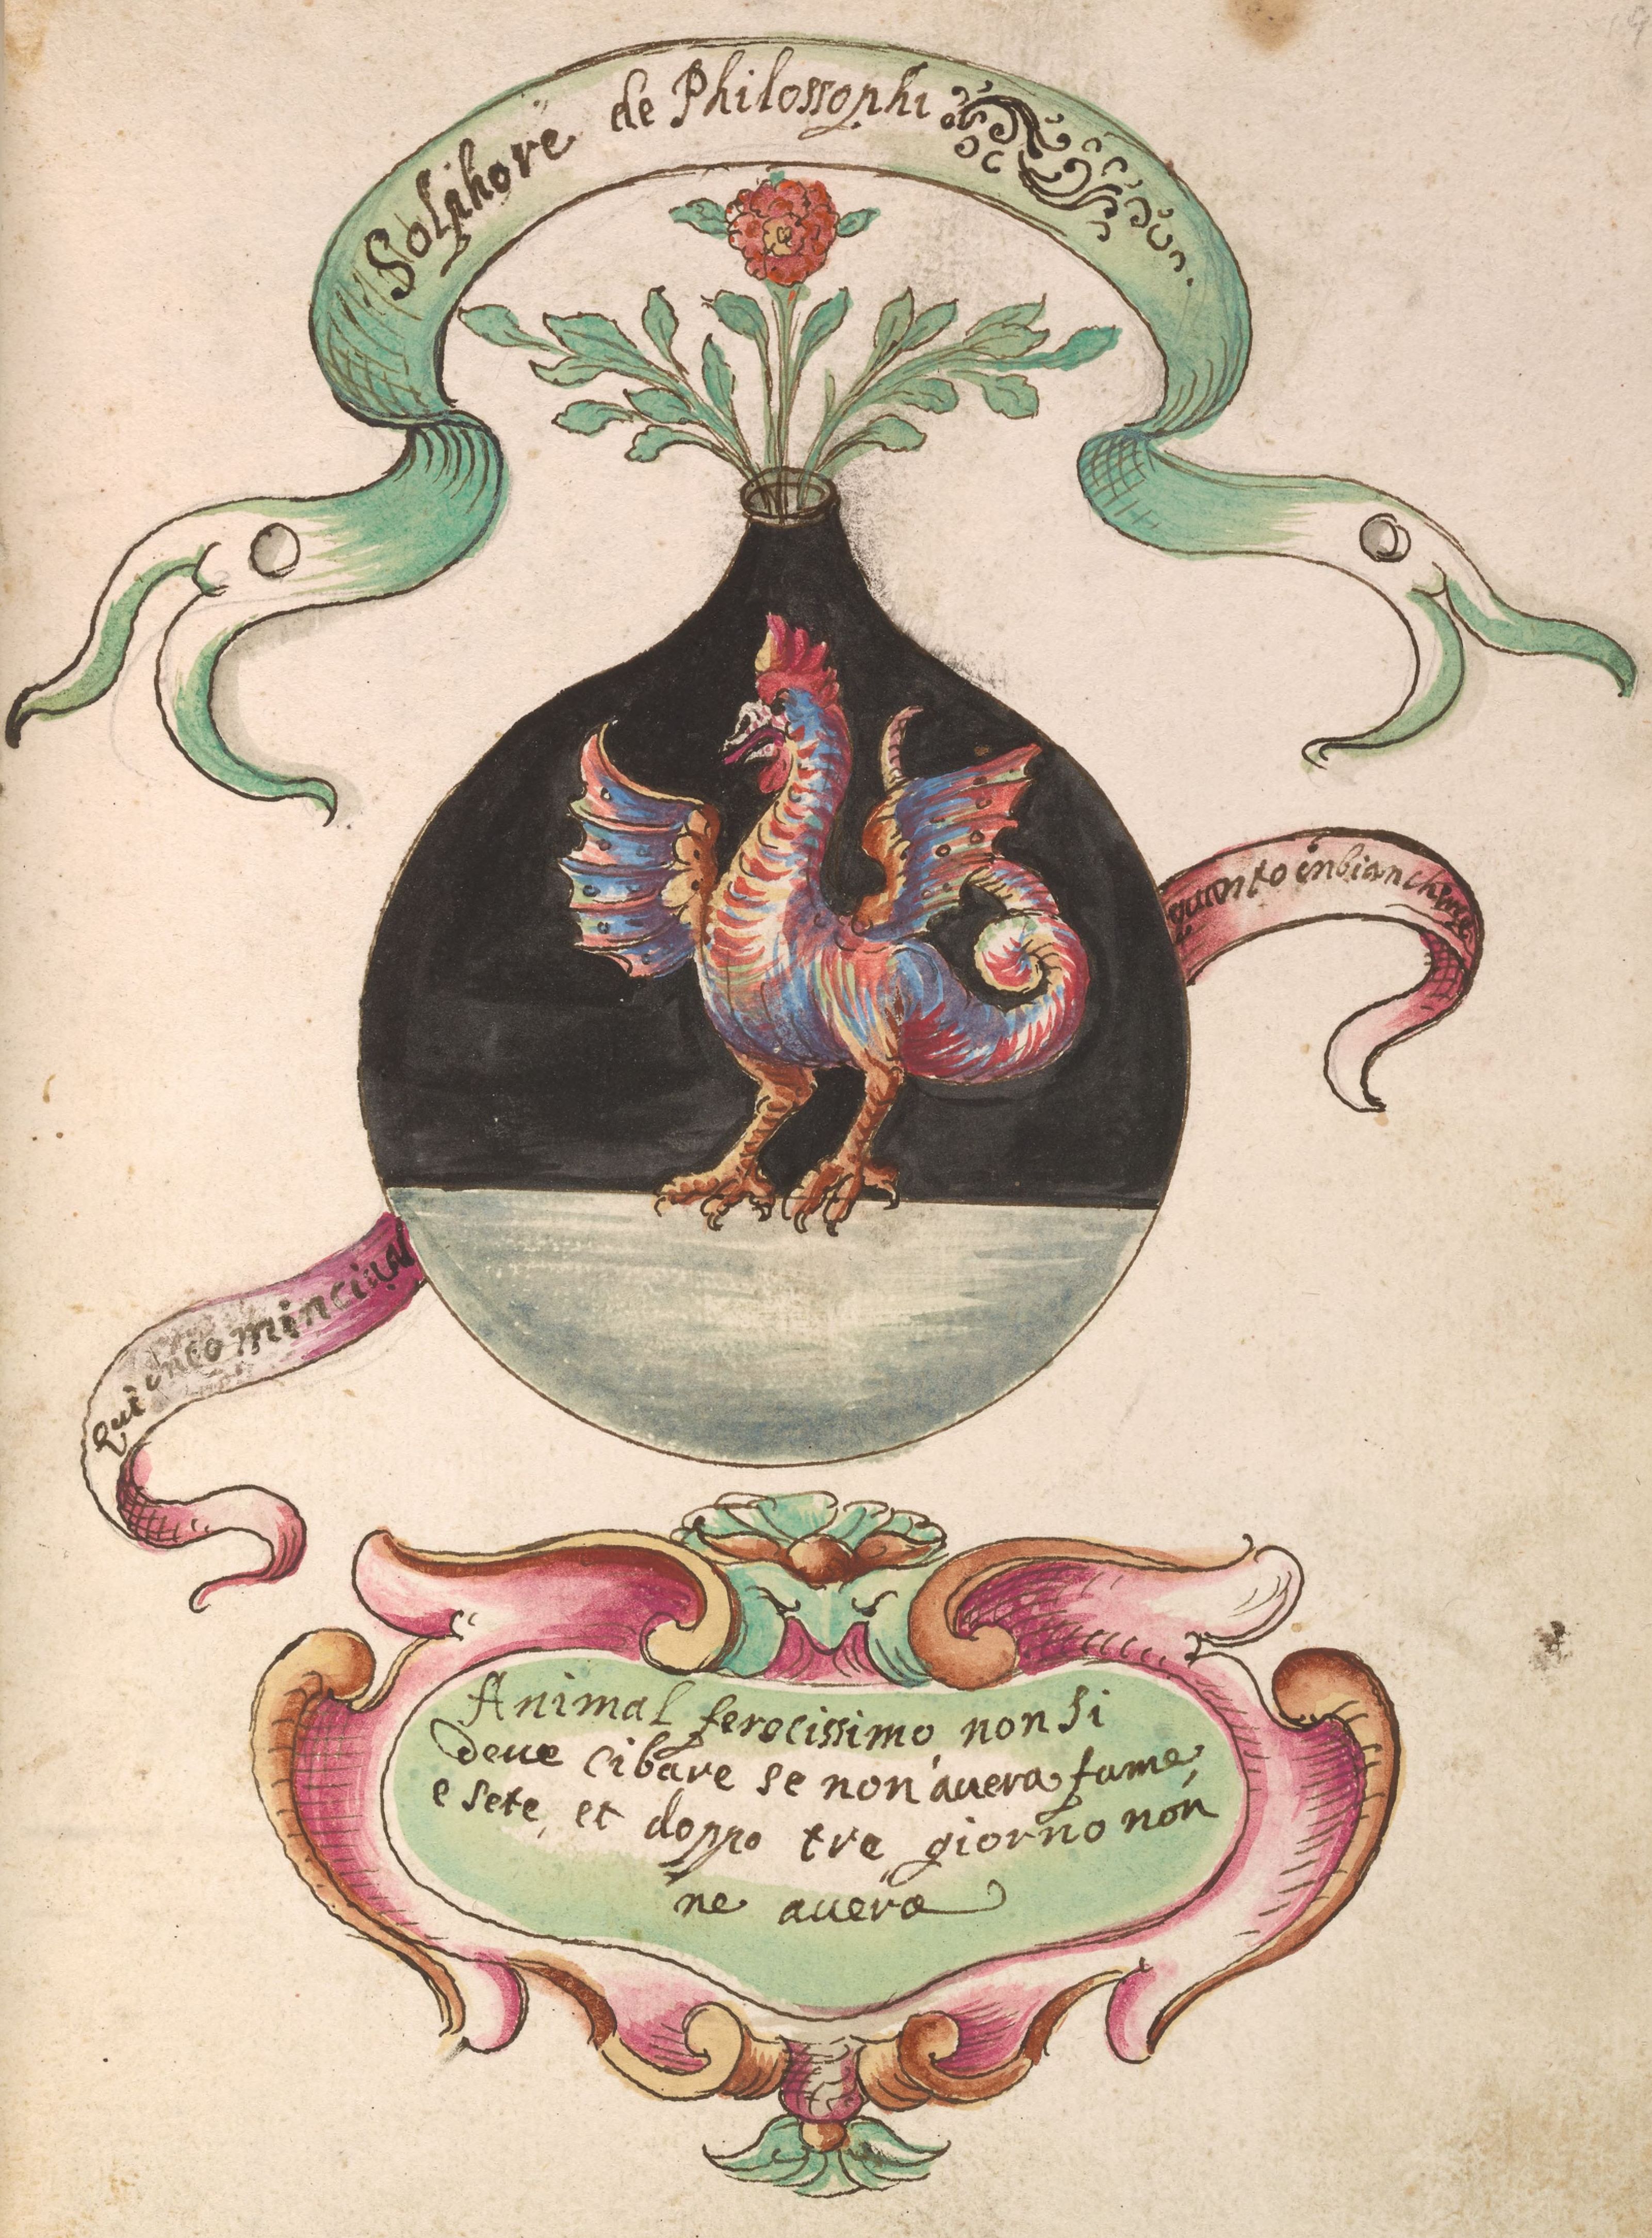 Solphore de Philossophi
quanto inbianchirà
Qui incomincia
Animal ferocissimo, non si
deue cibare se non auera fame,
e sete, et doppo tre giorno non
ne auera